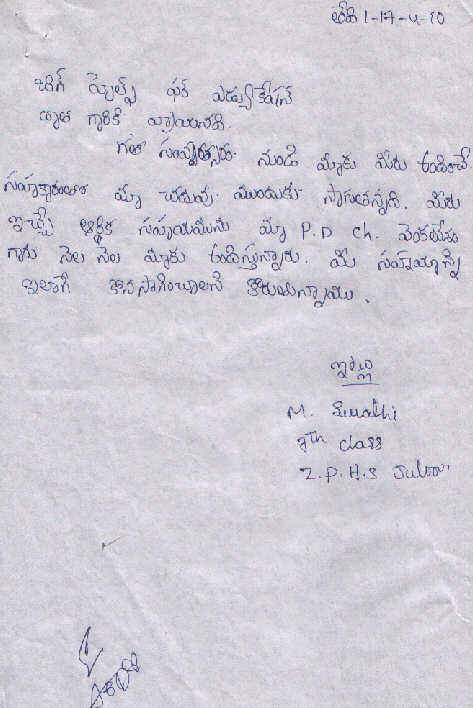 తేది 1-17-4-10
బిగ్ హెల్ప్ ఫర్ ఎడ్యుకేషన్
దాత గారికి వ్రాయునది.
గత సంవత్సరం నుండి మాకు మీరు అందించే
సహకారంతో మా చదువు ముందుకు సాగుతున్నది. మీరు
ఇచ్చే ఆర్థిక సహాయమును మా P.D ch. వెంకటేశం
గారు నెల నెల మాకు అందిస్తున్నారు. మీ సహాయాన్ని
ఇలాగే కొనసాగించాలని కోరుచున్నాము.
ఇట్లు
M. Swathi
7th class
Z.P.H.S